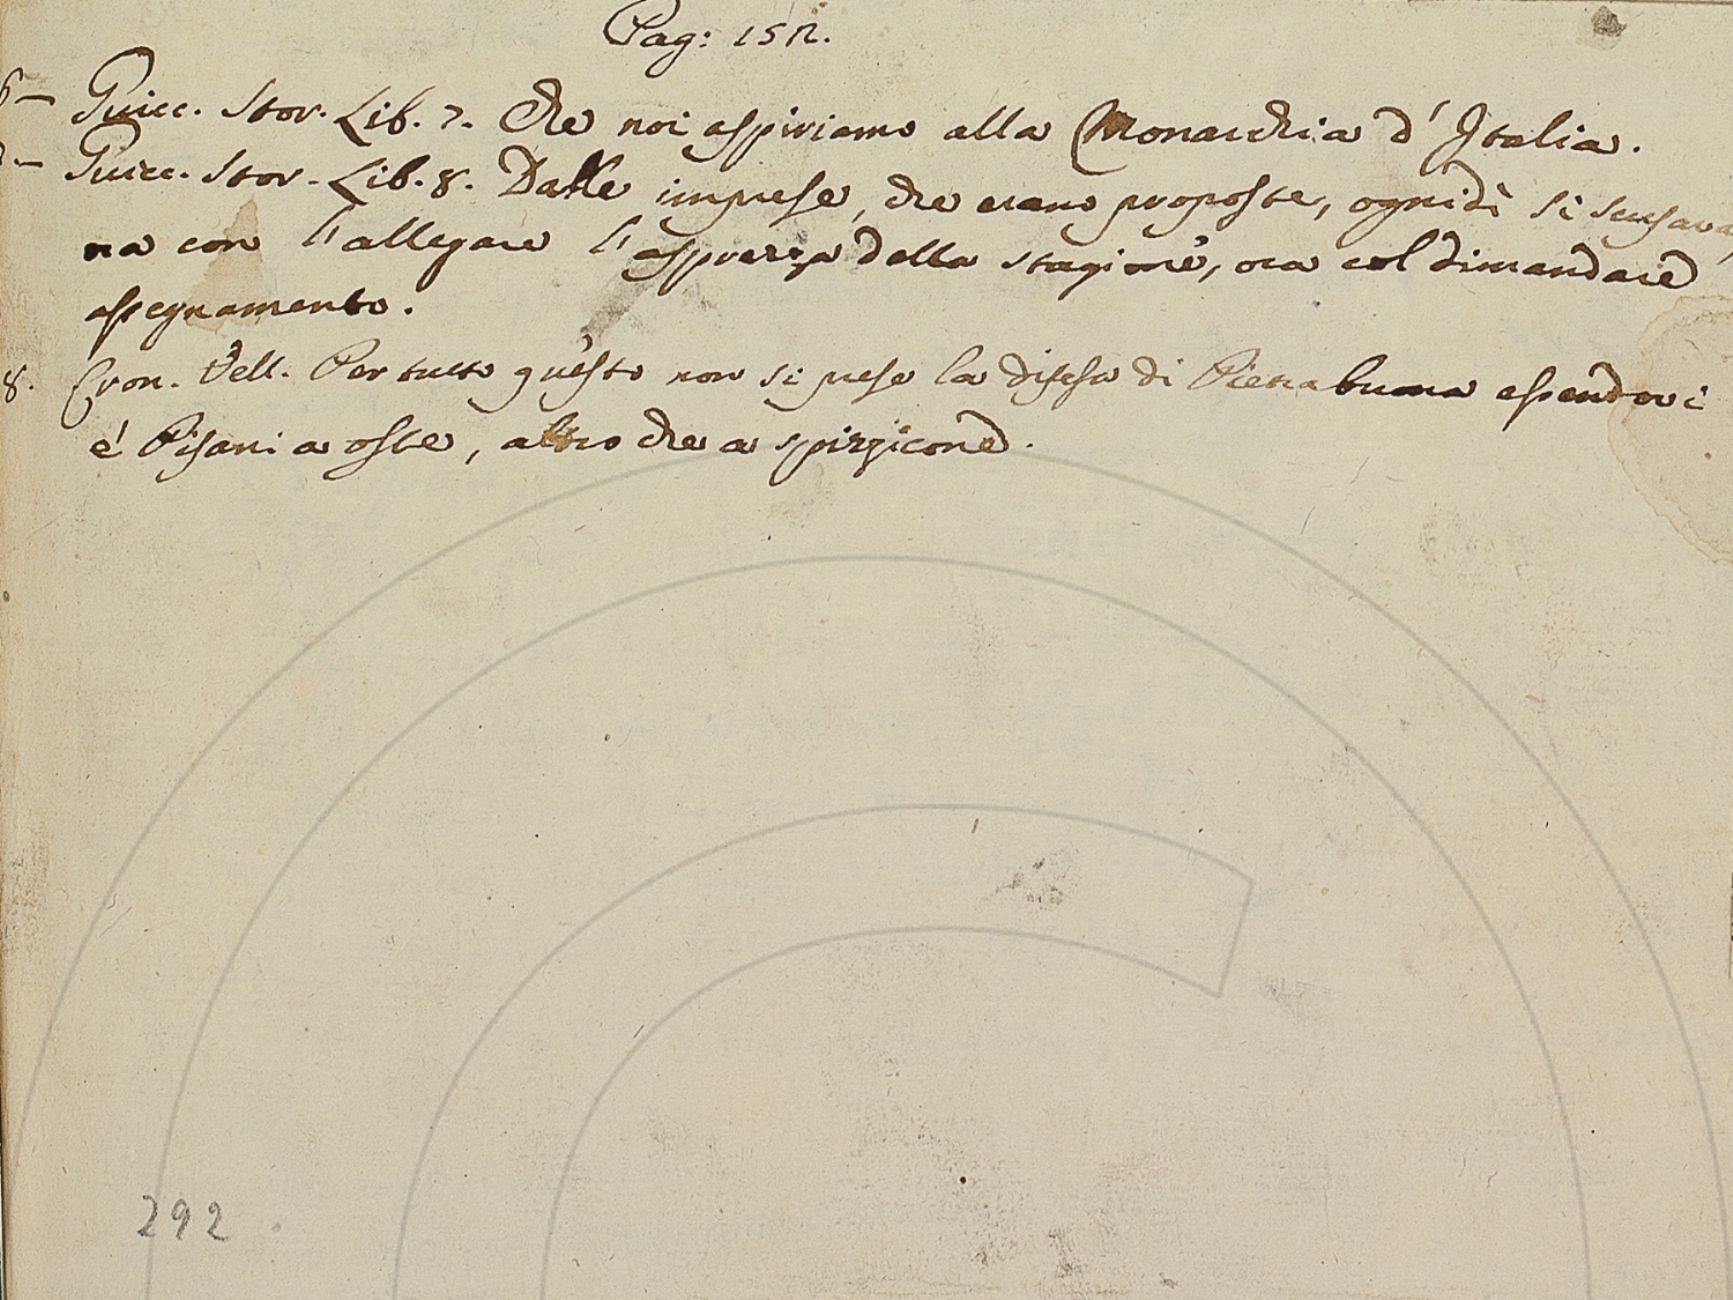 Pag: 152.
6 — Guicc. Stor. Lib. 7. Che noi aspiriamo alla Monarchia d' Italia.
— Guicc. Stor. Lib. 8. Dalle imprese, che erano proposte, ognidì si scusava,
ra con l'allegare l'asprezza della stagione, ora col dimandare
assegnamento.
8. Cron. Vell. Per tutto questo non si prese la difesa di Pietrabuona essendovi
e' Pisani a oste, altro che a spizzicone.
292